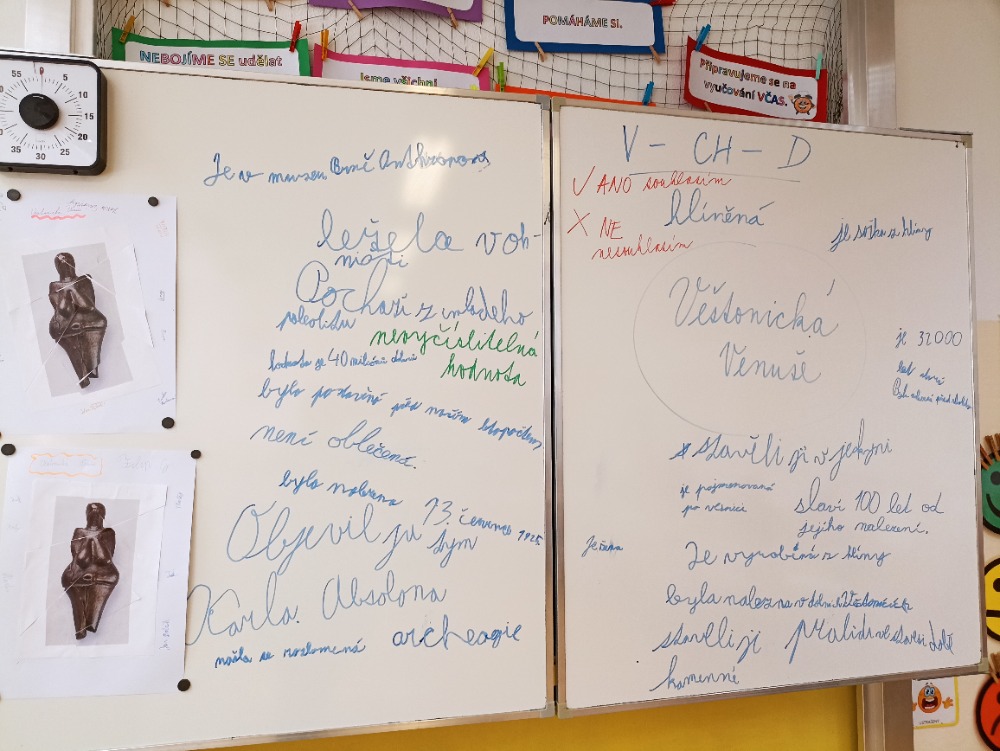 POMÁHÁME SI.
NEBOJÍME SE udělat
Jsme všichni
Připravujeme se na
vyučování VČAS.
55 0 5
10
15
20
25
30
35
Je v muzeu Brně Anthropos
ležela v oh-
ništi
Pochází z mladého
paleolitu
nevyčíslitelná
hodnota
hodnota je 40 milionů dolarů
bylo před naším letopočtem
není oblečená.
byla nalezena
13. července 1925
Objevil ju tým
Karla Absolona
archeagie
našla se rozlomená
V - CH - D
✓ ANO souhlasím
X NE
nesouhlasím
hlíněná
je soška z hlíny
Věstonická
Venuše
je 32000
let stará
stavěli ji v jeskyni
je pojmenovaná
po vesnici
slaví 100 let od
jejího nalezení.
Je žena
Je vyrobená z hlíny
byla nalezna v dolních Věstonicích
stavěli ji pralidi ve starší době
kamenné